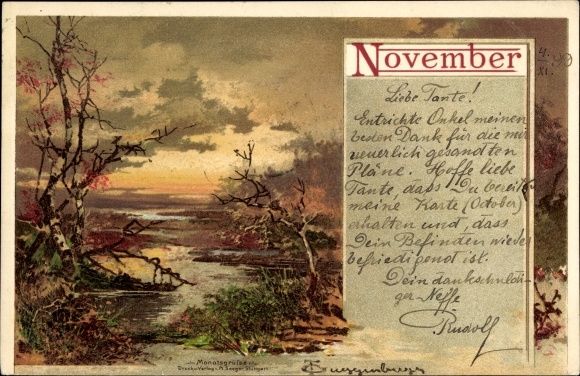 November
4. XI. 99
Liebe Tante!
Entrichte Onkel meinen
besten Dank für die mir
neuerlich gesandten
Pläne. Hoffe liebe
Tante, dass Du bereits
meine Karte (October)
erhalten und, dass
Dein Befinden wieder
befriedigend ist.
Dein dankschuldi-
ger Neffe
Rudolf
Monatsgrüsse
Druck u. Verlag v. M. Seeger, Stuttgart.